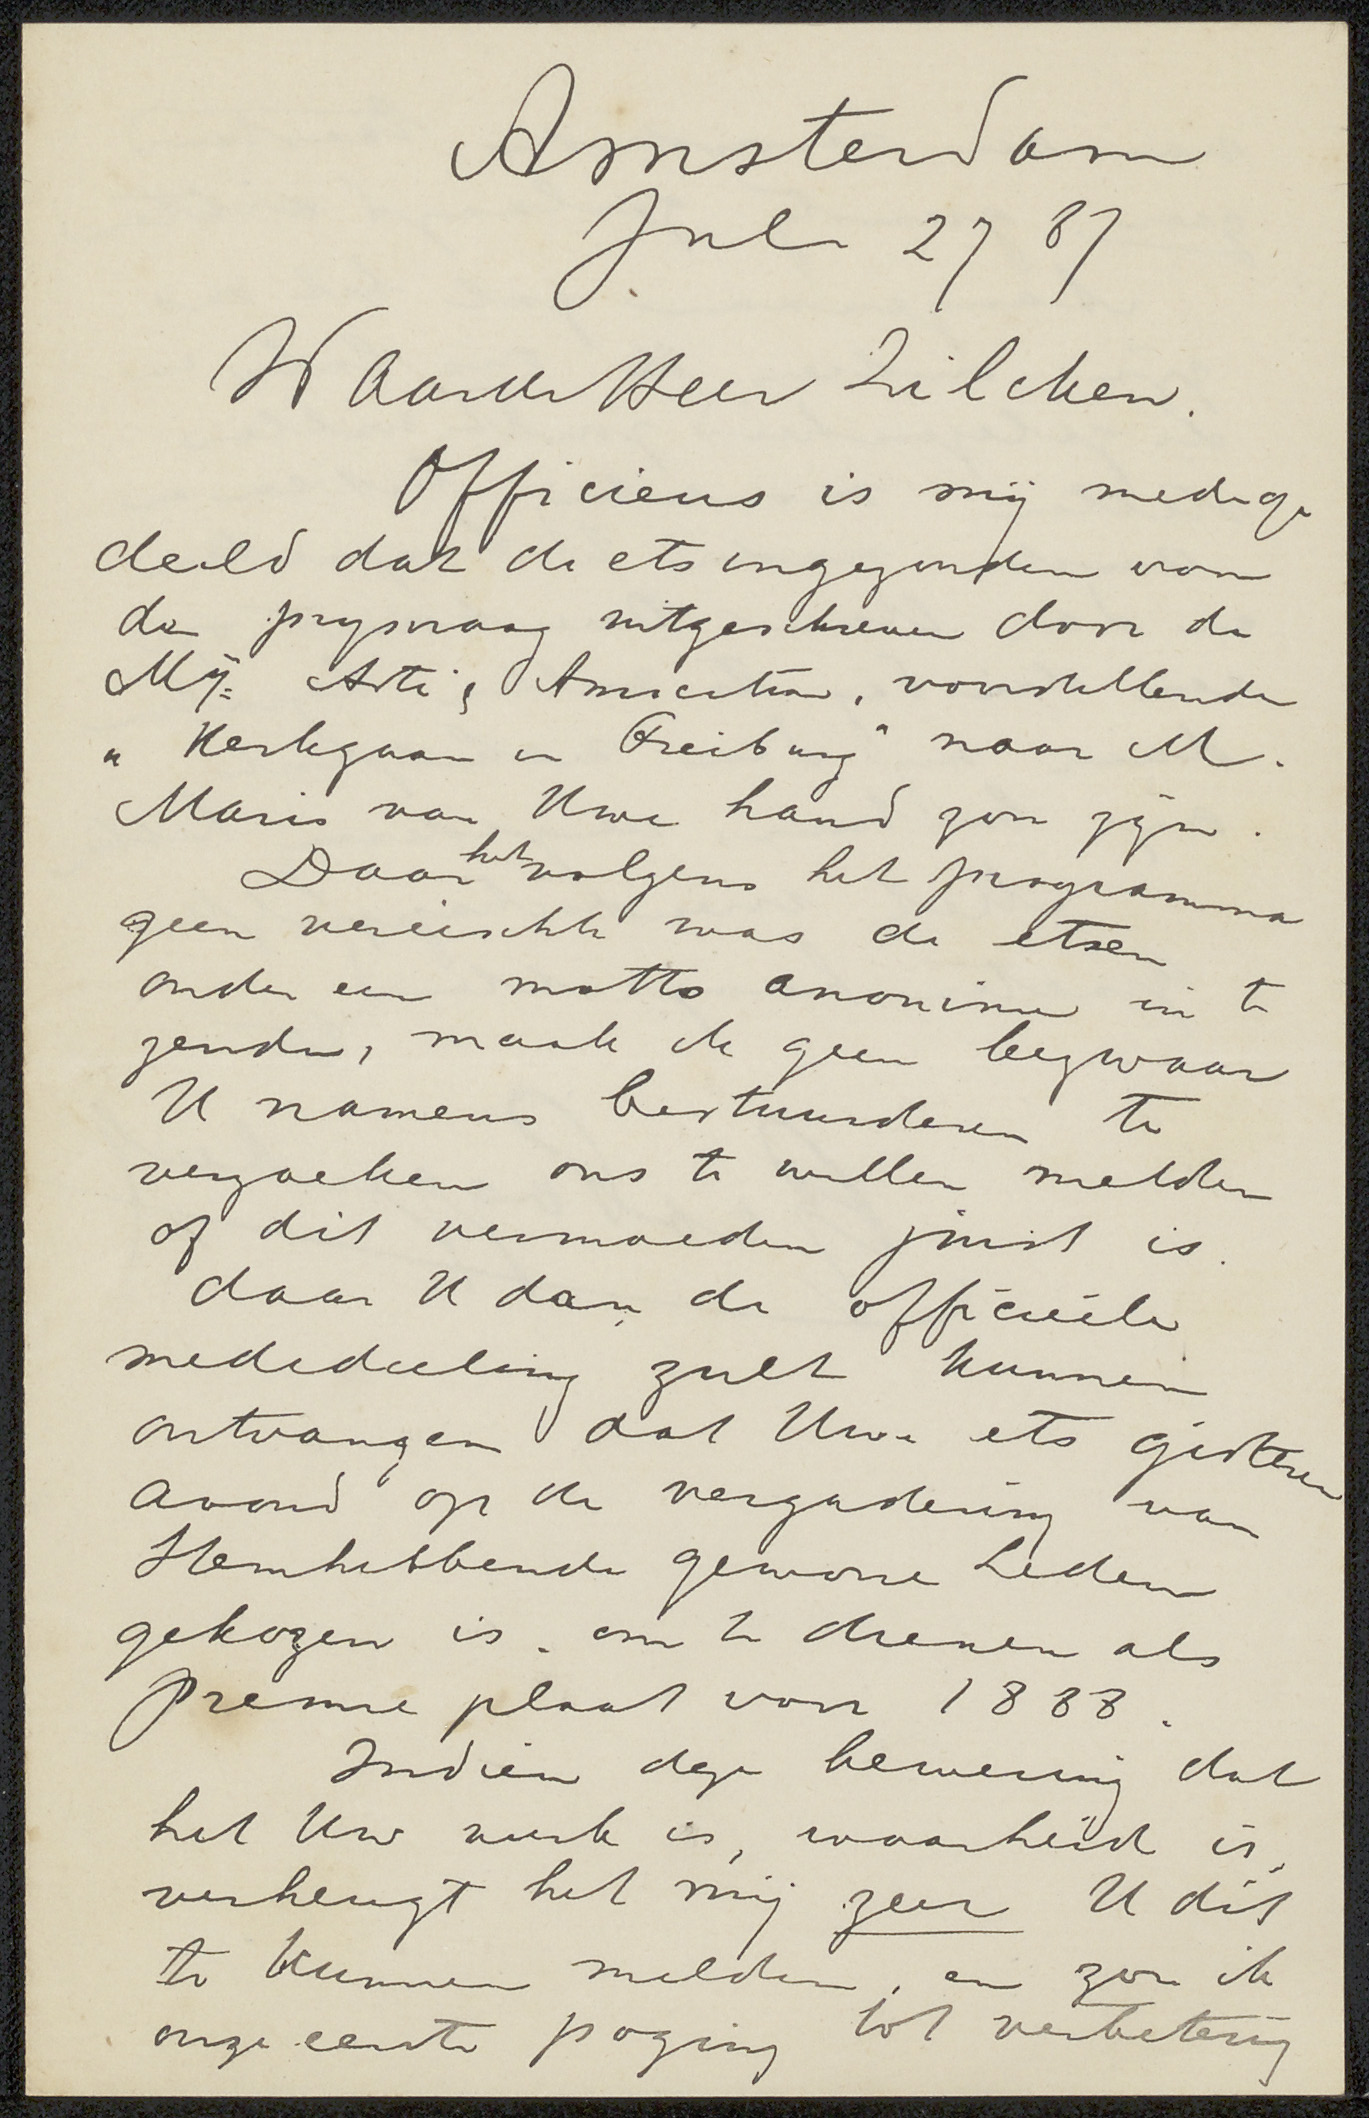 Amsterdam
Juli 27 87
Waarde Heer Zilcken.
Officieus is mij medege
deeld dat de ets ingezonden voor
de prijsvraag uitgeschreven door de
Mij: Arti & Amicitiae, voorstellende
„Kerkgaan in Freiburg" naar M.
Maris van Uwe hand zou zijn.
Daar het volgens het programma
geen vereischte was de etsen
onder een motto anoniem in te
zenden, maak ik geen bezwaar
U namens bestuurderen te
verzoeken ons te willen melden
of dit vermoeden juist is.
daar U dan de officieele
mededeeling zult kunnen
ontvangen dat Uwe ets gisteren
avond op de vergadering van
Stemhebbende gewone Leden
gekozen is. om te dienen als
premie plaat voor 1888.
Indien deze bewering dat
het Uw werk is, waarheid is,
verheugt het mij zeer U dit
te kunnen melden, en zou ik
onze eerste poging tot verbetering